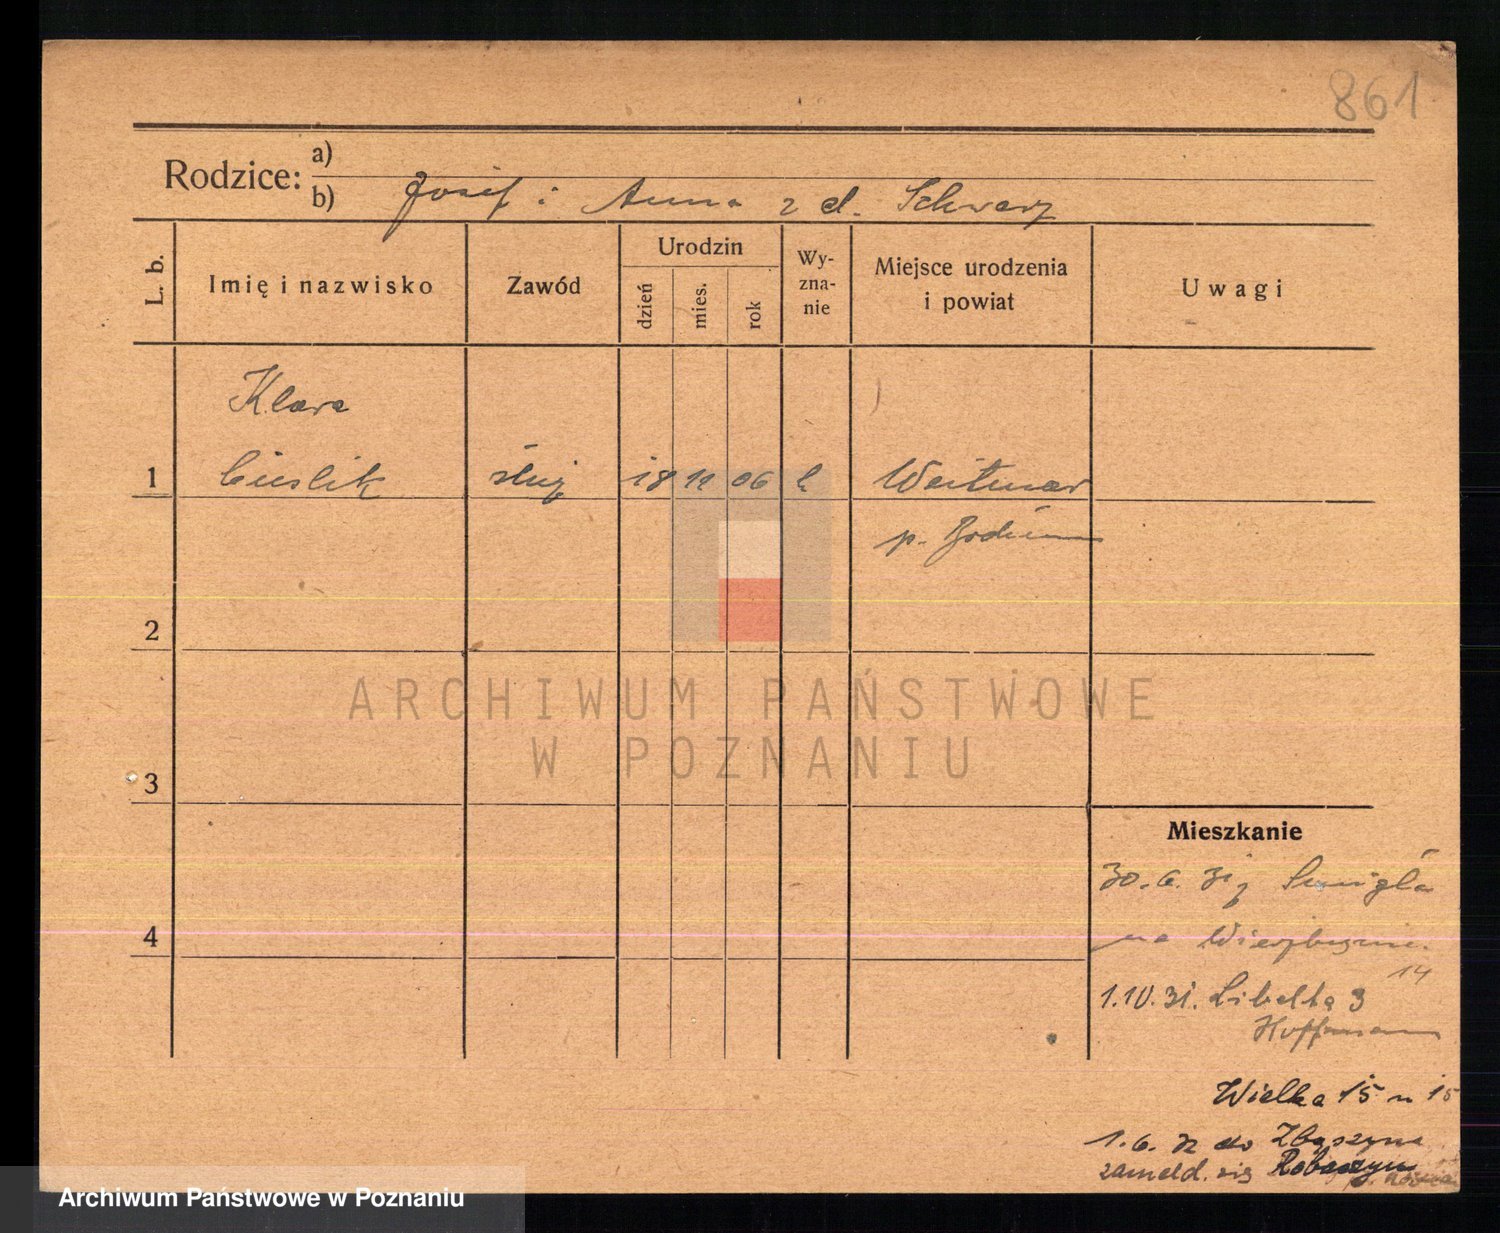 861
Rodzice: a)
b) Josef i Anna z d. Schwarz
L. b.
Imię i nazwisko
Zawód
Urodzin
dzień
mies.
rok
Wy-
zna-
nie
Miejsce urodzenia
i powiat
Uwagi
Klara
1 Cieslik służ 18 11 06 k Weitmar
p. Bochum
2
ARCHIWUM PAŃSTWOWE
W POZNANIU
3
Mieszkanie
30.6.31 z Śmigla
4
na Wierzbięcice
14
1.10.31. Libelta 3
Hoffmann
Wielka 15 m 15
1.6.32 do Zbąszyna
zameld. się
Archiwum Państwowe w Poznaniu